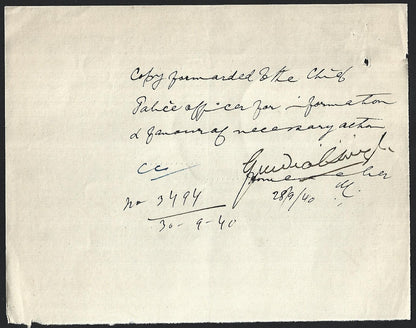 Copy forwarded to the Chief
Police officer for information
& favour of necessary action
CC
Gurdial Singh
28/9/40
No 3494
30-9-40